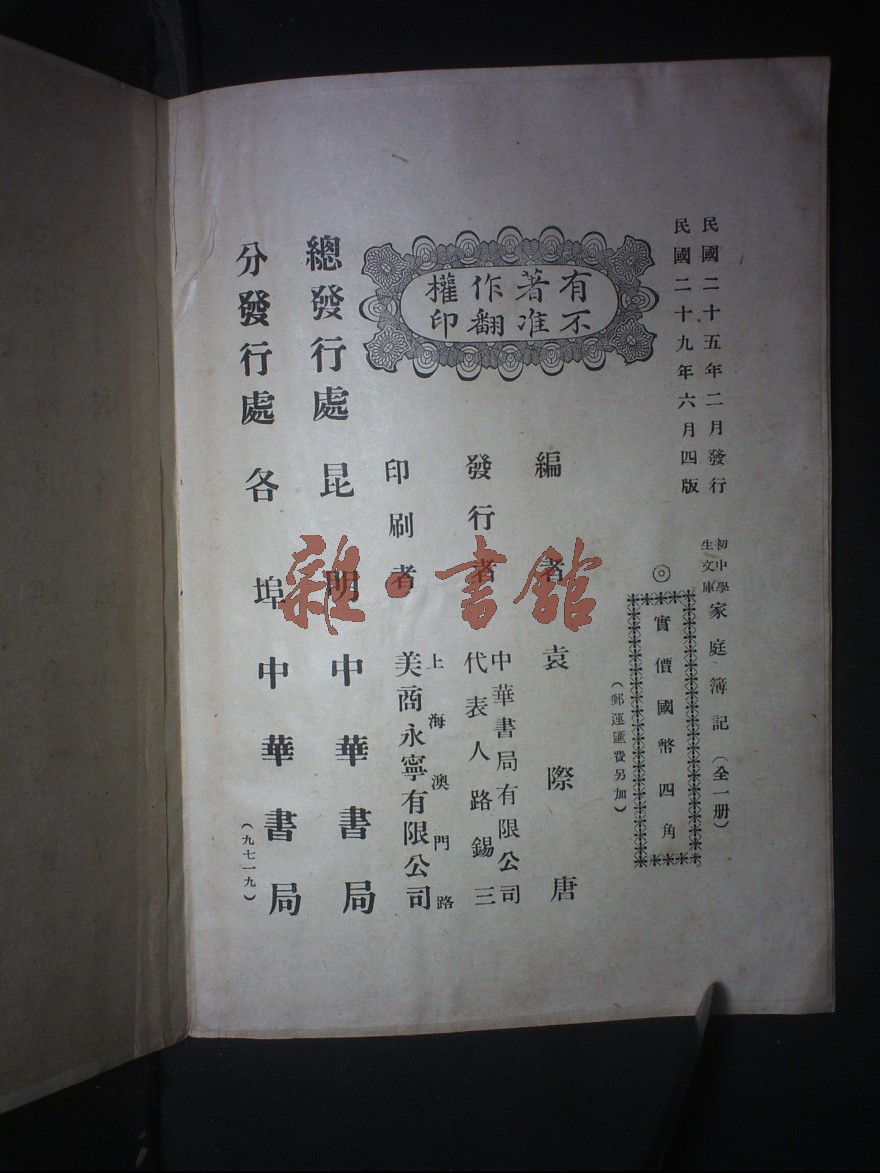 民國二十五年二月發行
民國二十九年六月四版
初中學
生文庫
家庭簿記（全一册）
◎
實價國幣四角
（郵運匯費另加）
有著作權
不准翻印
編者 袁際唐
發行者 中華書局有限公司
代表人路錫三
印刷者 上海澳門路
美商永寧有限公司
總發行處 昆明中華書局
分發行處 各埠中華書局
（九七一九）
雜書館